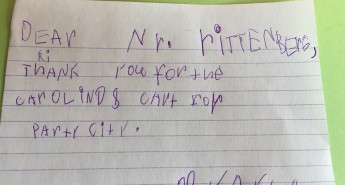 DEAr Nr. rITTENBERG,
THANK you for tHe
CArOLINDS CArt for
PArty City.